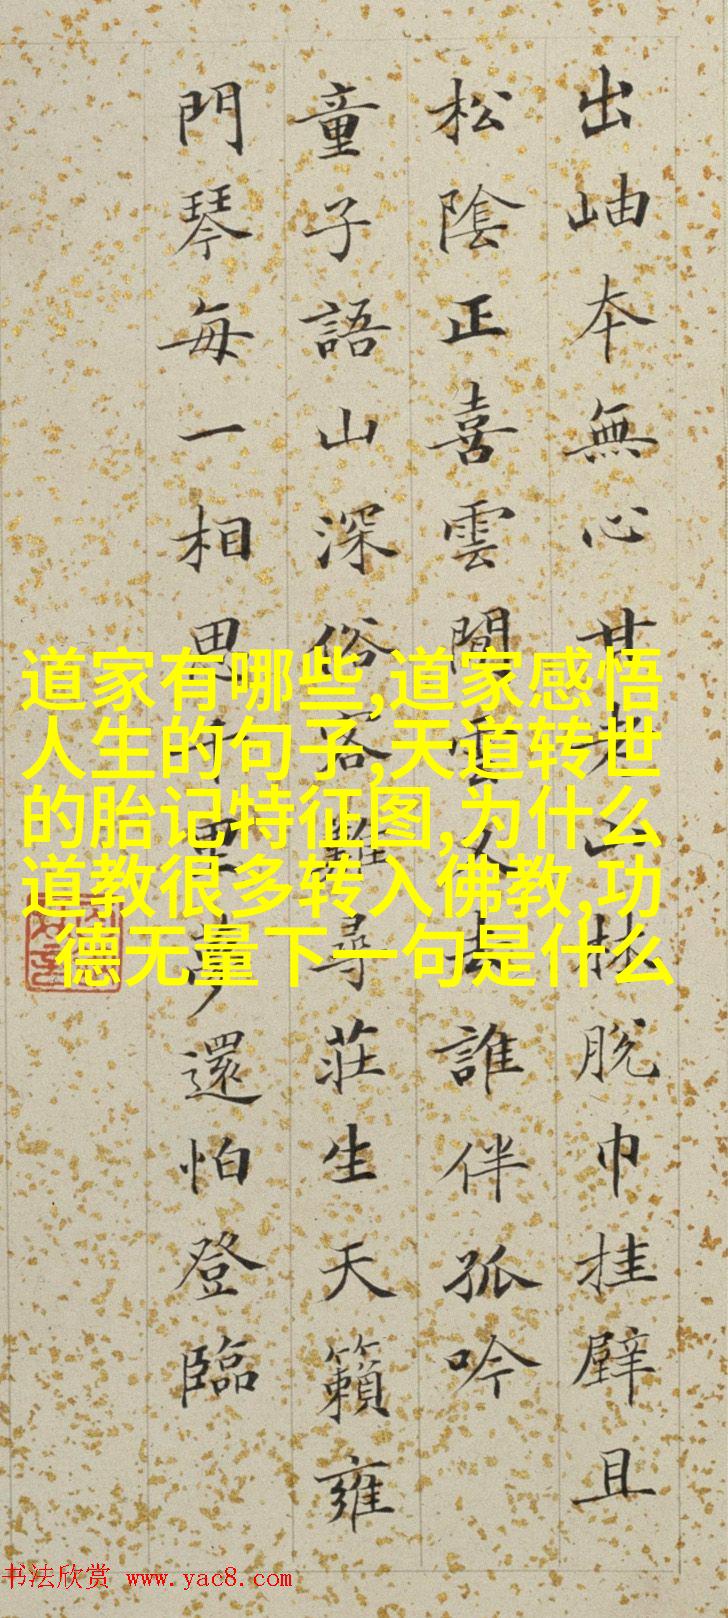 出岫本無心甘老山林脫巾挂壁且
松陰正喜雲閒雲又去誰伴孤吟
童子語山深俗客難尋莊生天籟雍
門琴每一相思千里夢還怕登臨
道家有哪些,道家感悟
人生的句子,天道转世
的胎记特征图,为什么
道教很多转入佛教,功
德无量下一句是什么
书法欣赏 www.yac8.com